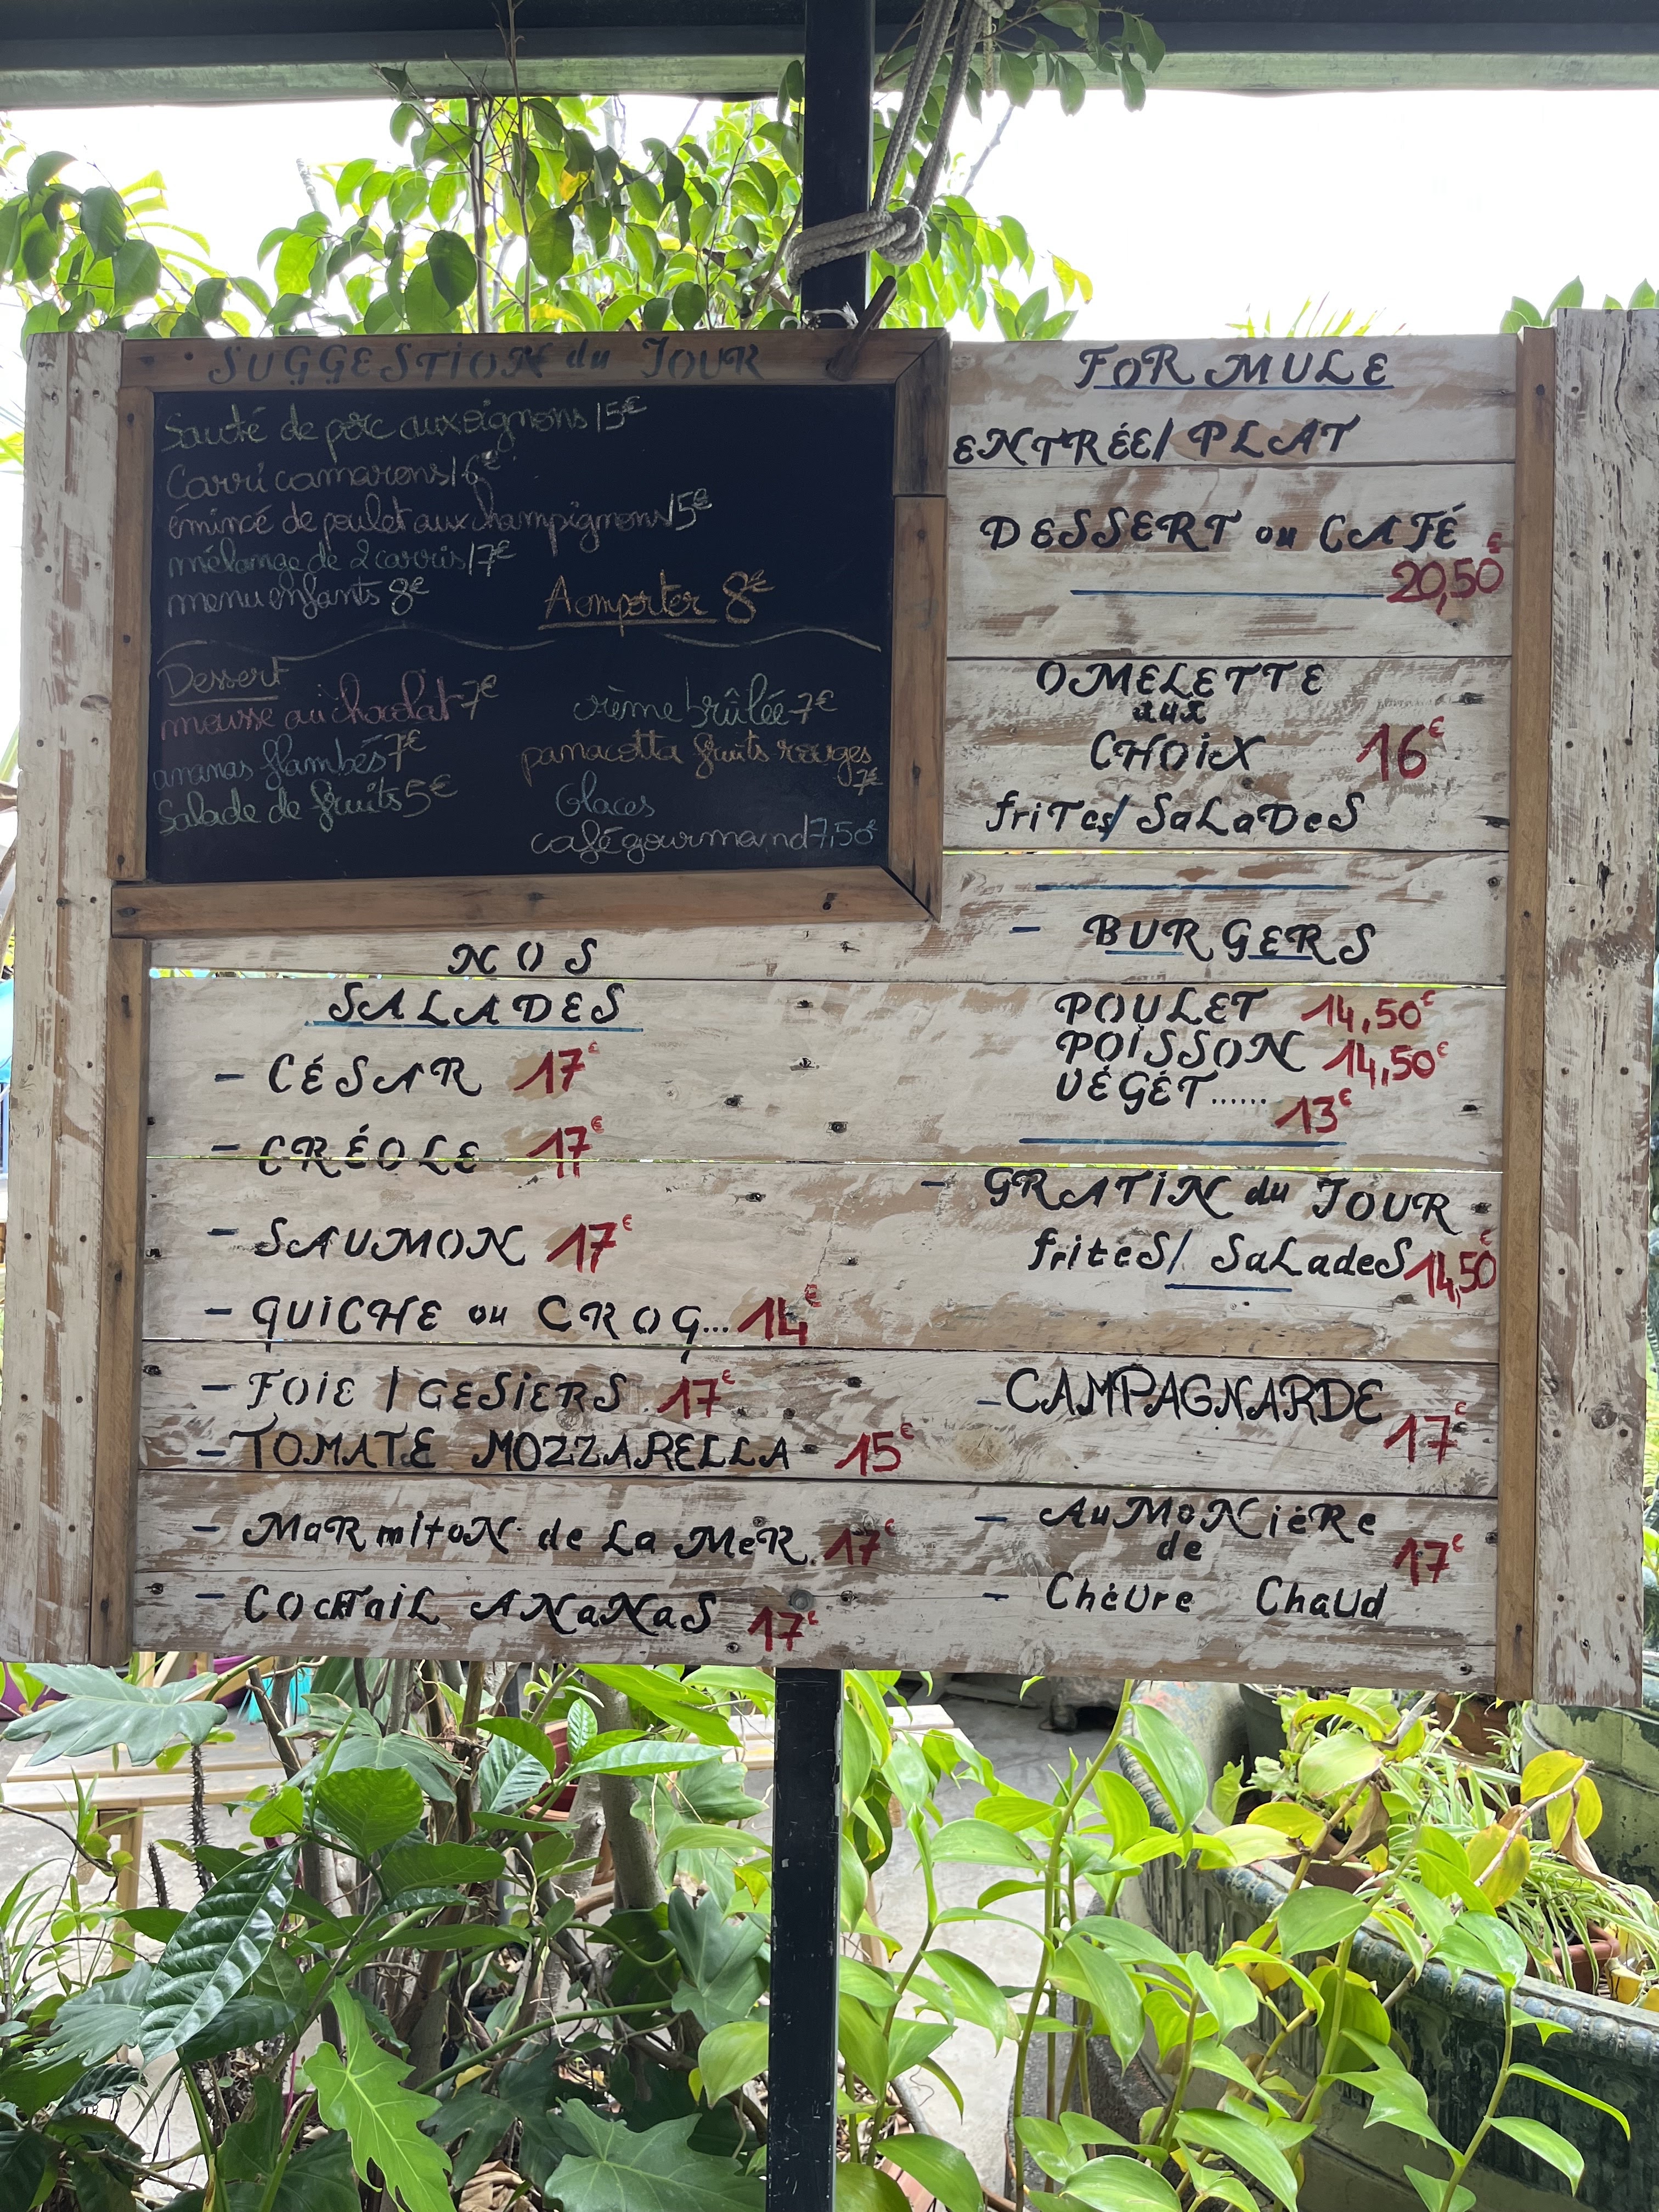 SUGGESTION du JOUR
Sauté de porc aux oignons 15€
Carri camarons 16€
émincé de poulet aux champignons 15€
mélange de 2 carris 17€
menu enfants 8€
A emporter 8€
Dessert
mousse au chocolat 7€
ananas flambés 7€
Salade de fruits 5€
crème brûlée 7€
panacotta fruits rouges
7€
Glaces
café gourmand 7,50€
FORMULE
ENTRÉE/PLAT
DESSERT ou CAFÉ
20,50€
OMELETTE
aux
CHOIX 16€
friTes/SaLaDeS
- BURGERS
POULET 14,50€
POISSON 14,50€
VÉGÉT...... 13€
- GRATIN du JOUR
friteS/ SaLadeS 14,50€
NOS
SALADES
- CÉSAR 17€
- CRÉOLE 17€
- SAUMON 17€
- QUICHE ou CROQ... 14€
- FOIE / GESIERS 17€
- TOMATE MOZZARELLA 15€
- MaRmitoN de La MeR 17€
- COckTaiL ANaNaS 17€
- CAMPAGNARDE 17€
- AuMoNièRe
de 17€
- Chèvre Chaud